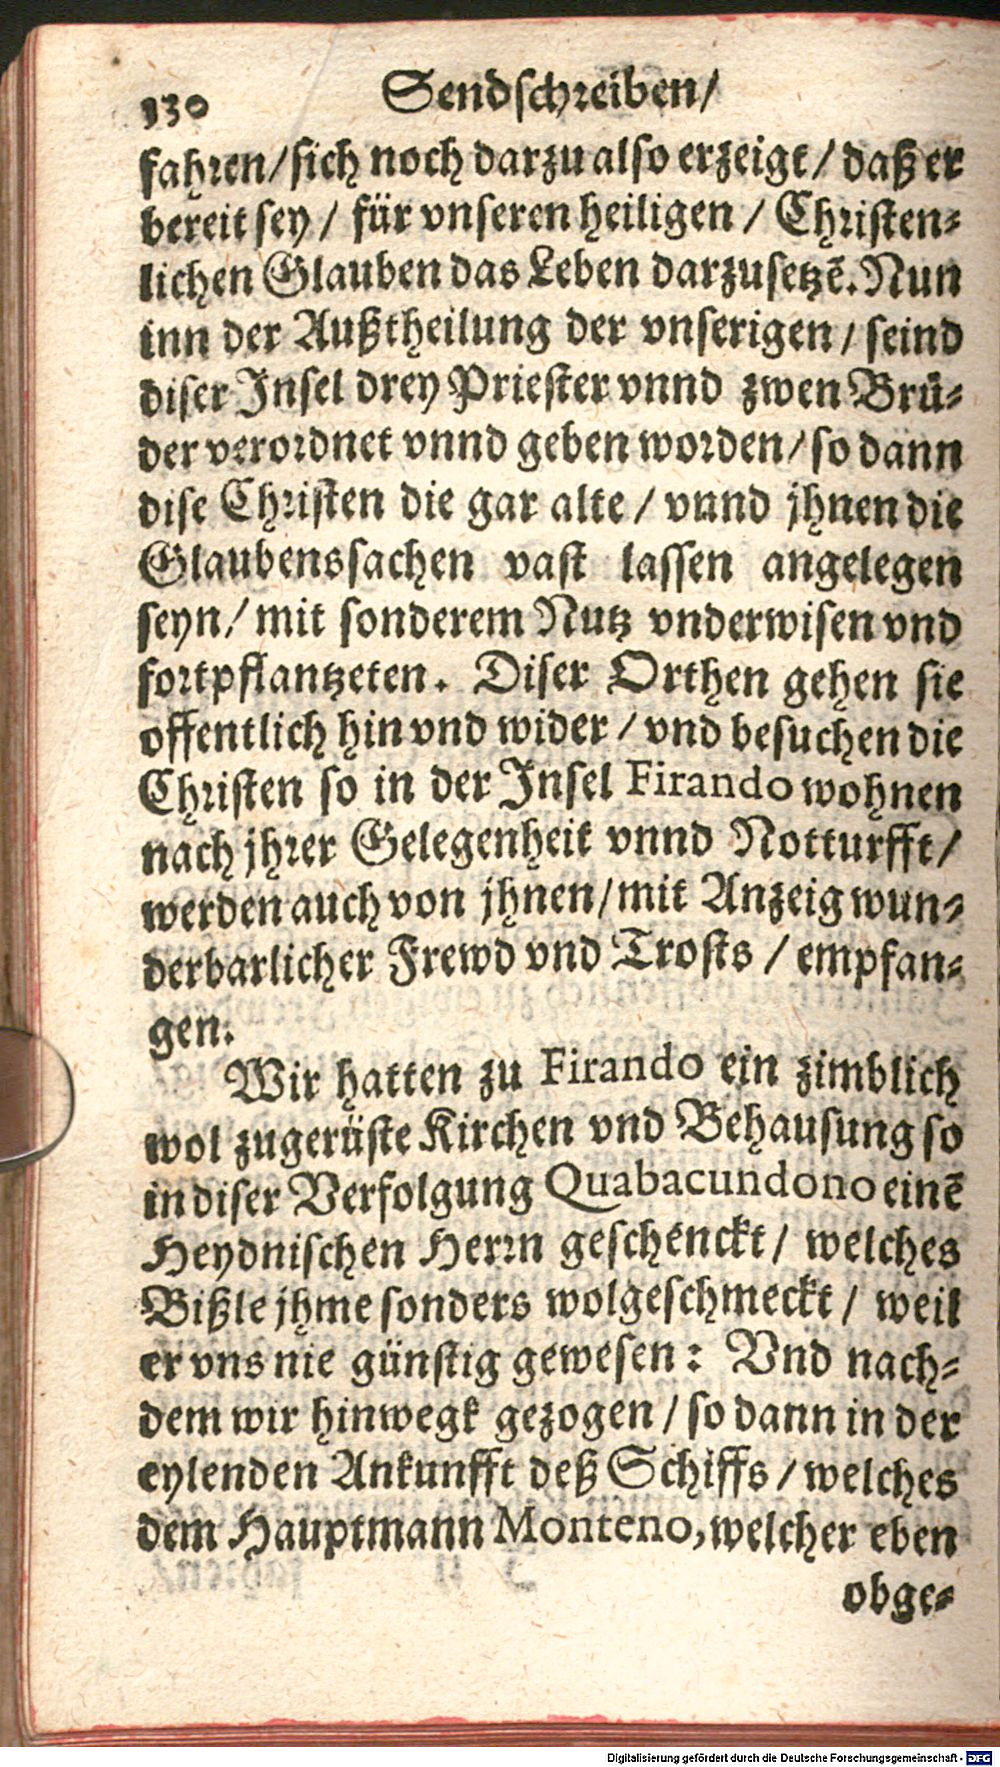 130 Sendschreiben/
fahren/sich noch darzu also erzeigt/ daß er
bereit sey/ für vnseren heiligen/ Christen-
lichen Glauben das Leben darzusetzẽ. Nun
inn der Außtheilung der vnserigen/ seind
diser Insel drey Priester vnnd zwen Brü-
der verordnet vnnd geben worden/ so dann
dise Christen die gar alte/ vnnd jhnen die
Glaubenssachen vast lassen angelegen
seyn/ mit sonderem Nutz vnderwisen vnd
fortpflantzeten. Diser Orthen gehen sie
offentlich hin vnd wider/ vnd besuchen die
Christen so in der Insel Firando wohnen
nach jhrer Gelegenheit vnnd Notturfft/
werden auch von jhnen/mit Anzeig wun-
derbarlicher Frewd vnd Trosts/ empfan-
gen.
Wir hatten zu Firando ein zimblich
wol zugerüste Kirchen vnd Behausung so
in diser Verfolgung Quabacundono einẽ
Heydnischen Herrn geschenckt/ welches
Bißle jhme sonders wolgeschmeckt/ weil
er vns nie günstig gewesen: Vnd nach-
dem wir hinwegk gezogen/ so dann in der
eylenden Ankunfft deß Schiffs/ welches
dem Hauptmann Monteno, welcher eben
obge-
Digitalisierung gefördert durch die Deutsche Forschungsgemeinschaft - DFG